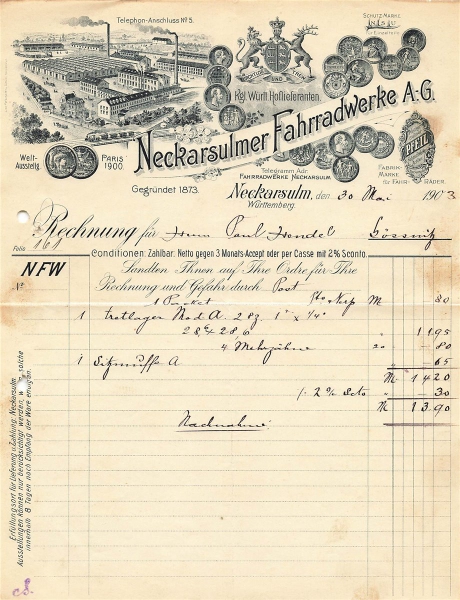 Telephon-Anschluss Nº 5.
SCHUTZ-MARKE
für Einzelteile
FURCHTLOS UND TREW
Kgl. Württ. Hoflieferanten.
Neckarsulmer Fahrradwerke A.-G.
Welt-Ausstellg. PARIS 1900.
PFEIL
FABRIK-MARKE FÜR FAHR-RÄDER.
Telegramm Adr.
FAHRRADWERKE NECKARSULM
Gegründet 1873.
Neckarsulm, den 30 Mai 1903
Württemberg.
Rechnung für Herrn Paul Hendel Gössnitz
Folio 161
Conditionen: Zahlbar: Netto gegen 3 Monats-Accept oder per Casse mit 2% Sconto.
NFW
Sandten Ihnen auf Ihre Ordre für Ihre
Rechnung und Gefahr durch Post
Nº
1 Packet M 80
1 Tretlager Rad A. 28z. 1" x 1/4"
28 & 286 11 95
4 Mehrzähne 20 - 80
1 Sitzmuffe A - 65
M 14 20
2% Scto - 30
M 13 90
Nachnahme
Erfüllungsort für Lieferung u. Zahlung: Neckarsulm.
Ausstellungen können nur berücksichtigt werden, wenn solche
innerhalb 8 Tagen nach Empfang der Ware erfolgen.